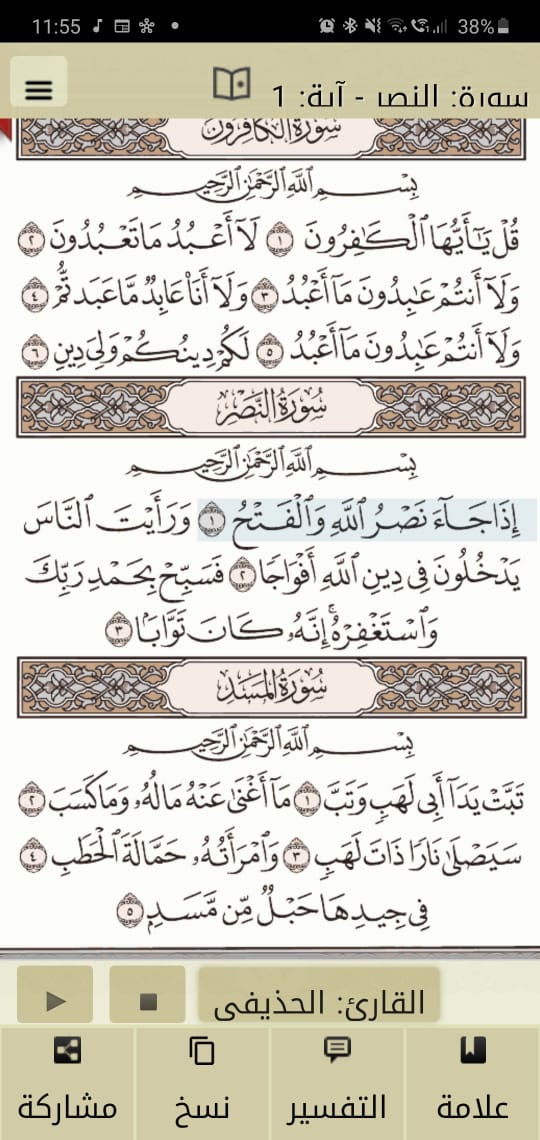 11:55
38%
سورة: النصر - آية: 1
سُورَةُ الكَافِرُونَ
بِسْمِ ٱللَّهِ ٱلرَّحْمَٰنِ ٱلرَّحِيمِ
قُلْ يَٰٓأَيُّهَا ٱلْكَٰفِرُونَ ١ لَآ أَعْبُدُ مَا تَعْبُدُونَ ٢
وَلَآ أَنتُمْ عَٰبِدُونَ مَآ أَعْبُدُ ٣ وَلَآ أَنَا۠ عَابِدٌ مَّا عَبَدتُّمْ ٤
وَلَآ أَنتُمْ عَٰبِدُونَ مَآ أَعْبُدُ ٥ لَكُمْ دِينُكُمْ وَلِىَ دِينِ ٦
سُورَةُ النَّصْرِ
بِسْمِ ٱللَّهِ ٱلرَّحْمَٰنِ ٱلرَّحِيمِ
إِذَا جَآءَ نَصْرُ ٱللَّهِ وَٱلْفَتْحُ ١ وَرَأَيْتَ ٱلنَّاسَ
يَدْخُلُونَ فِى دِينِ ٱللَّهِ أَفْوَاجًا ٢ فَسَبِّحْ بِحَمْدِ رَبِّكَ
وَٱسْتَغْفِرْهُ ۚ إِنَّهُۥ كَانَ تَوَّابًۢا ٣
سُورَةُ المَسَدِ
بِسْمِ ٱللَّهِ ٱلرَّحْمَٰنِ ٱلرَّحِيمِ
تَبَّتْ يَدَآ أَبِى لَهَبٍ وَتَبَّ ١ مَآ أَغْنَىٰ عَنْهُ مَالُهُۥ وَمَا كَسَبَ ٢
سَيَصْلَىٰ نَارًا ذَاتَ لَهَبٍ ٣ وَٱمْرَأَتُهُۥ حَمَّالَةَ ٱلْحَطَبِ ٤
فِى جِيدِهَا حَبْلٌ مِّن مَّسَدٍۭ ٥
القارئ: الحذيفى
علامة
التفسير
نسخ
مشاركة